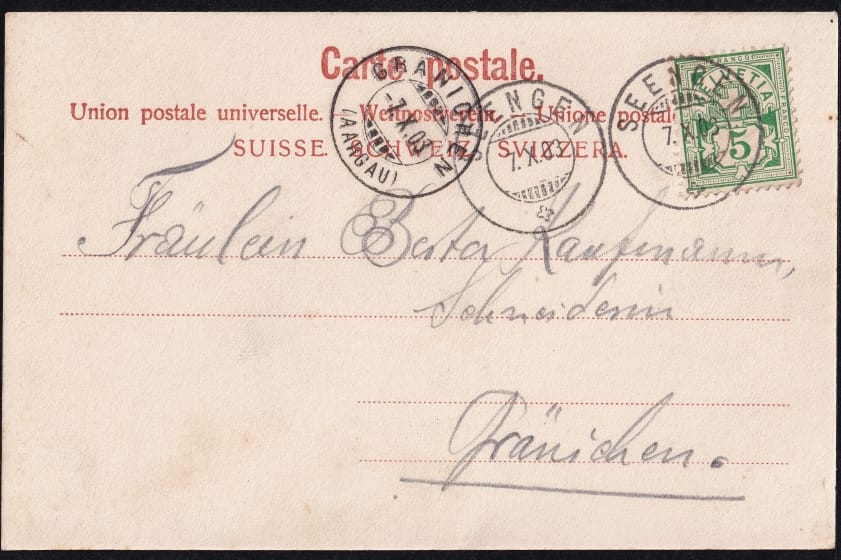 Carte postale.
Union postale universelle. — Weltpostverein. — Unione postale
SUISSE. SCHWEIZ. SVIZZERA.
GRÄNICHEN
-7.X.03
(AARGAU)
SEENGEN
7.X.03
SEENGEN
7.X.03
FRANCO
HELVETIA
5
Fräulein Berta Kaufmann,
Schneiderin
Gränichen.